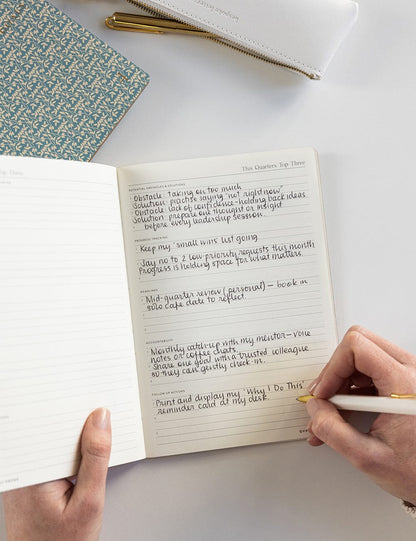 This Quarter's Top Three
POTENTIAL OBSTACLES & SOLUTIONS
Obstacle: taking on too much
Solution: practise saying "not right now"
Obstacle: lack of confidence - holding back ideas
Solution: prepare one thought or insight
before every leadership session.
PROGRESS TRACKING
Keep my 'small wins' list going
Say no to 2 low-priority requests this month
Progress is holding space for what matters.
REWARDS
Mid-quarter review (personal) – book in
solo cafe date to reflect.
ACCOUNTABILITY
Monthly catch-up with my mentor – voice
notes or coffee chats.
Share one goal with a trusted colleague
so they can gently check-in.
FOLLOW UP ACTIONS
Print and display my "Why I Do This"
reminder card at my desk.